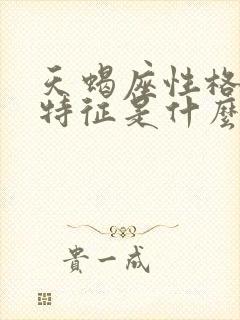 天蝎座性格
特征是什麼
貴一成